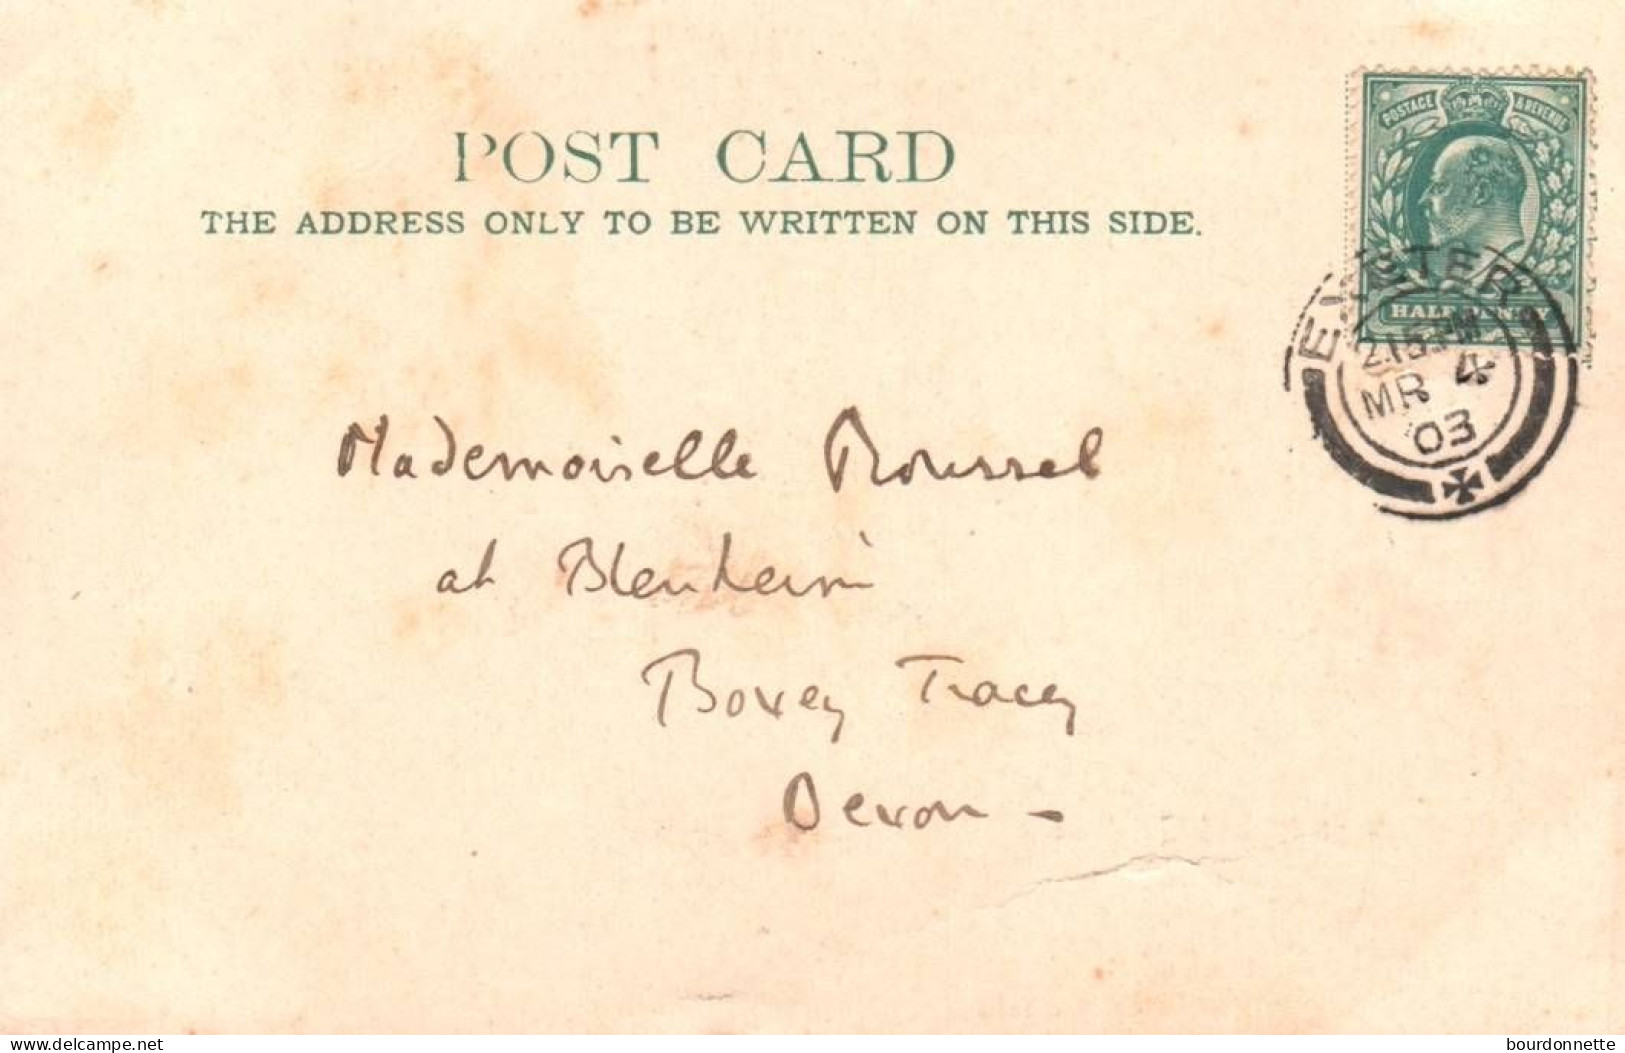 POST CARD
THE ADDRESS ONLY TO BE WRITTEN ON THIS SIDE.
POSTAGE & REVENUE
HALFPENNY
EXETER
2.15 PM
MR 4
03
Mademoiselle Roussel
at Blenheim
Bovey Tracey
Devon -
www.delcampe.net
bourdonnette